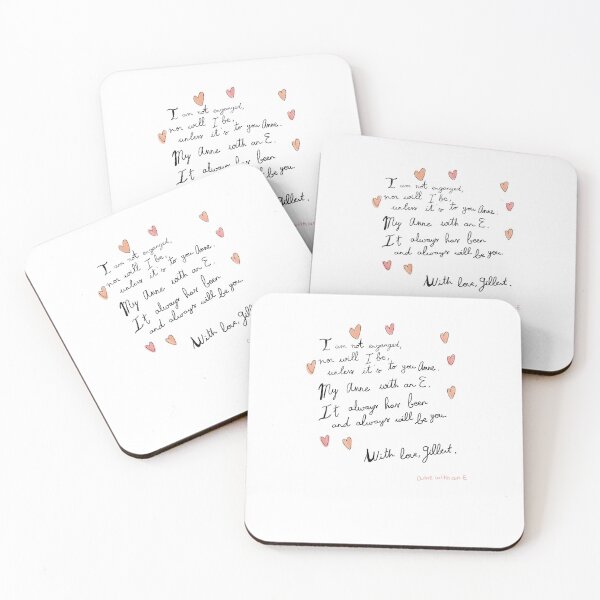 I am not enganged,
nor will I be,
unless it's to you Anne.
My Anne with an E.
It always has been
be you
Gilbert.
I am not enganged,
nor will I be,
unless it's to you Anne.
My Anne with an E.
It always has been
and always will be you.
With love, Gilbert.
I am not enganged,
nor will I be,
unless it's to you Anne.
My Anne with an E.
It always has been
and always will be you
With love
I am not enganged,
nor will I be,
unless it's to you Anne.
My Anne with an E.
It always has been
and always will be you.
With love, Gilbert.
anne with an E